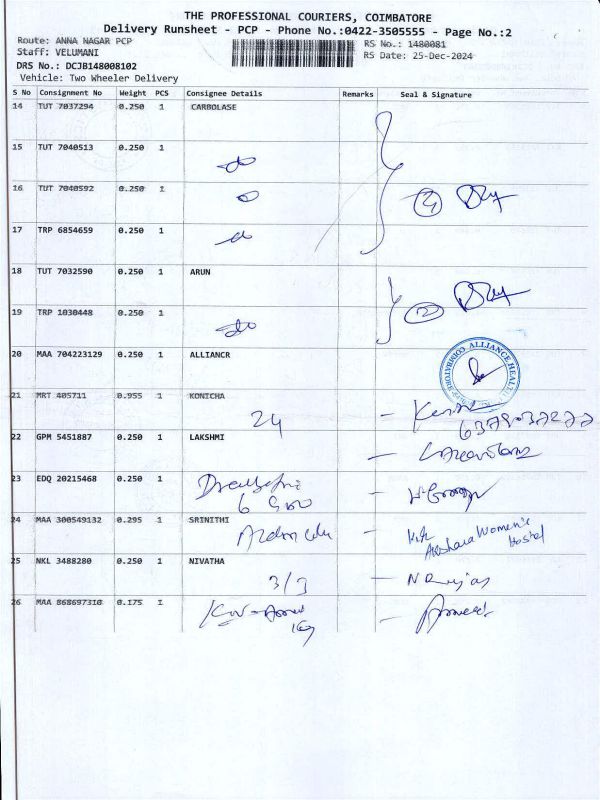 THE PROFESSIONAL COURIERS, COIMBATORE
Delivery Runsheet - PCP - Phone No.:0422-3505555 - Page No.:2
Route: ANNA NAGAR PCP
RS No.: 1480081
Staff: VELUMANI
RS Date: 25-Dec-2024
DRS No.: DCJB148008102
Vehicle: Two Wheeler Delivery
S No Consignment No Weight PCS Consignee Details Remarks Seal & Signature
14 TUT 7037294 0.250 1 CARBOLASE
15 TUT 7040513 0.250 1
do
16 TUT 7040592 0.250 1
4
17 TRP 6854659 0.250 1
18 TUT 7032590 0.250 1 ARUN
19 TRP 1030448 0.250 1
2
do
20 MAA 704223129 0.250 1 ALLIANCR
ALLIANCE HEALTH
21 MRT 405711 0.955 1 KONICHA
24
22 GPM 5451887 0.250 1 LAKSHMI
23 EDQ 20215468 0.250 1
24 MAA 300549132 0.295 1 SRINITHI
Akshara Women's
Hostel
25 NKL 3488280 0.250 1 NIVATHA
3/3
26 MAA 868697310 0.175 1